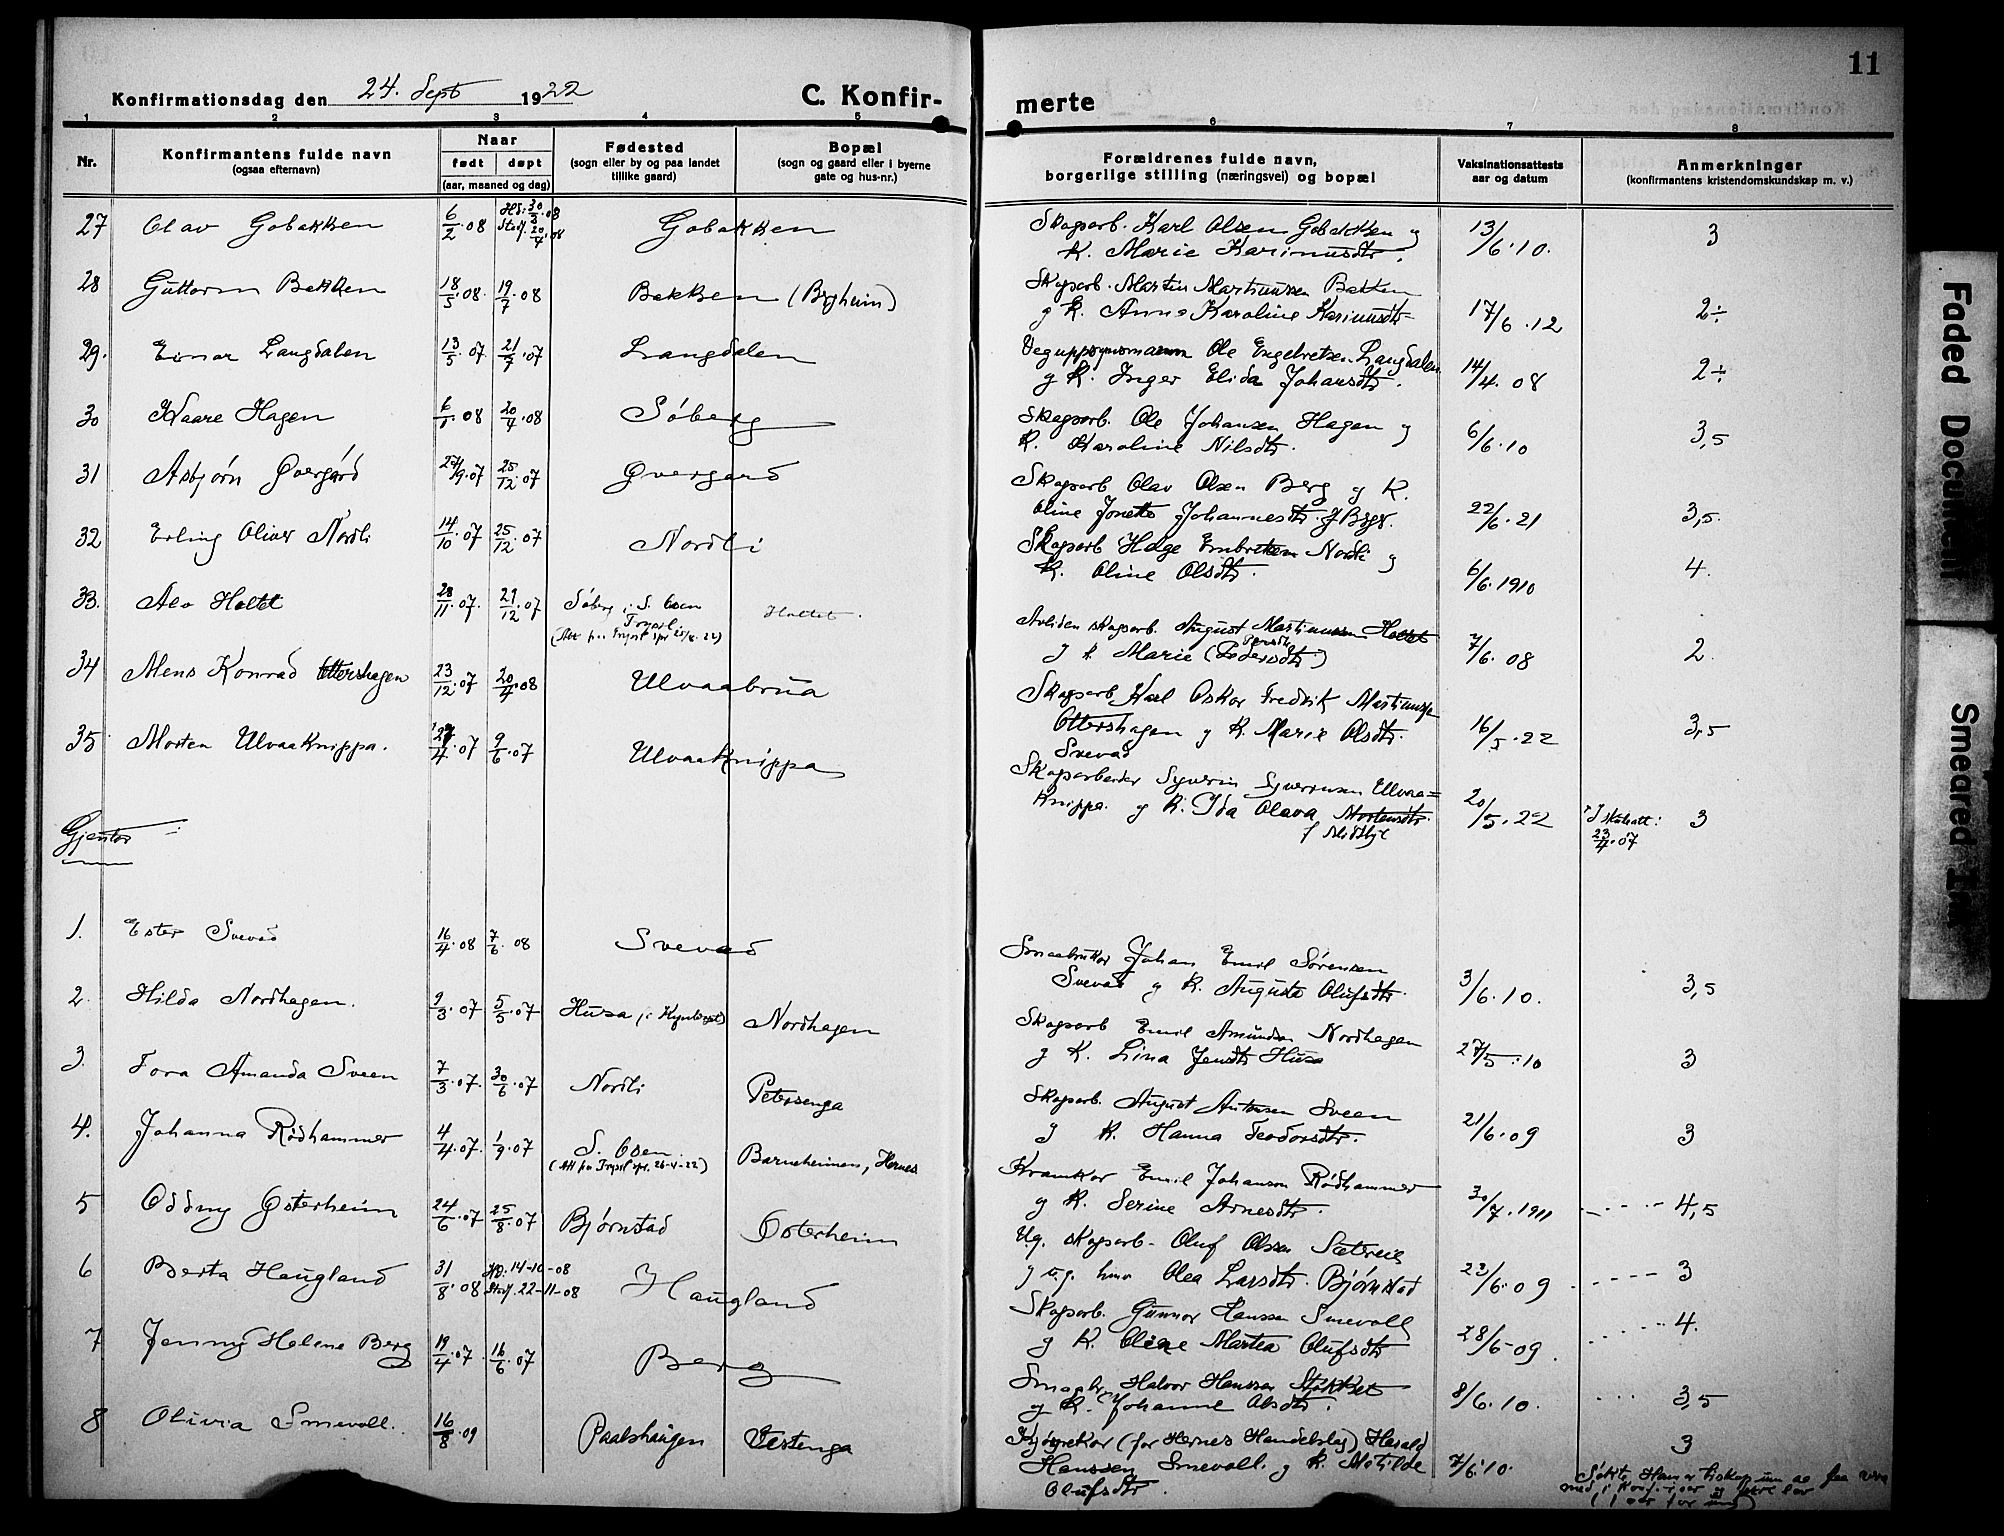 11
Konfirmationsdag den 24. Sept 1922
C. Konfir-
merte
1 2 3 4 5 6 7 8
Nr.
Konfirmantens fulde navn
(ogsaa efternavn)
Naar
født døpt
(aar, maaned og dag)
Fødested
(sogn eller by og paa landet
tillike gaard)
Bopæl
(sogn og gaard eller i byerne
gate og hus-nr.)
Forældrenes fulde navn,
borgerlige stilling (næringsvei) og bopæl
Vaksinationsattests
aar og datum
Anmerkninger
(konfirmantens kristendomskundskap m. v.)
27 Olav Gobakken 6/2 08 Hd. 30/3 08 Stadf. 20/4 08 Gobakken
Skogsarb. Karl Olsen Gobakken og
K. Marie Karinusdtr. 13/6.10. 3
28 Guttorm Bakken 18/5.08. 19/7.08 Bakken (Bergheim)
Skogsarb. Martin Martinusen Bakken
og K. Anne Karoline Karinusdtr 17/6.12 2÷
29. Einar Langdalen 13/5.07 21/7.07 Langdalen
Veguppsynsmann Ole Engebretsen Langdalen
og K. Inger Elida Johansdtr. 14/4.08 2÷
30 Kaare Hagen 20/4.08 Søberg
Skogsarb. Ole Johansen Hagen og
K. Karoline Nilsdtr. 6/6.10 3,5
31 Asbjørn Øvergård 27/9.07 25/12.07 Øvergard
Skogsarb Olav Olsen Berg og K.
Oline Jonette Johannesdtr. 22/6.21 3,5.
32 Erling Oliver Nordli 14/10.07 25/12.07 Nordli
Skogsarb Helge Embretsen Nordli og
K. Oline Olsdtr. 6/6.1910 4.
33. Alv Holtet 28/11.07. 29/12.07 Søberg i S. Osen
Trysil
(Att fra Trysil spr 25/8.22) Holtet.
Avliden skogsarb. August Martinussen Holtet
og K Marie (Pedersdtr) 7/6.08 2.
34 Mens Konrad Ottershagen 23/12.07 20/4.08 Ulvaabrua
Skogsarb Karl Oskar Fredrik Martinusen
Ottershagen og K. Marie Olsdtr.
Svevad 16/5.22 3,5
35 Morten Ulvaaknippa. 4.07 9/6.07 Ulvaaknippa
Skogsarbeider Syverin Syverinsen Ulvaa=
knippa. og K. Ida Olava Mortensdtr.
f Midtbye 20/5.22 I skuleatt: 3
23/4.07
Gjentor:
1. Ester Svevad 16/4.08 7/6.08 Svevad
Smaabrukar Johan Emil Sørensen
Svevad og K. Augusta Olufsdtr. 3/6.10. 3,5
2. Hilda Nordhagen. 9/3.07 5/5.07 Husa, i Nordhagen
Skogsarb Emil Amundsen Nordhagen
og K. Lina Jensdtr Husa 27/5.10 3
3. Tora Amanda Sveen 7/3.07. 30/6.07 Nordli Petersenga
Skogsarb. August Antonsen Sveen
og K. Hanna Teodorsdtr. 21/6.09 3
4. Johanna Rødhammer 4/4.07. 1/9.07 S. Osen
(Att fra Trysil spr. 26-4-22) Barneheimen, Hernes
Kramkar Emil Johanson Rødhammer
og K. Serine Arnesdtr. 30/7.1911 4,5
5 Oddny Østerheim 24/6.07 25/8.07 Bjørnstad Østerheim
Ug. skogsarb. Oluf Olsen Sætreie
og ug. Olea Larsdtr. Bjørnstad 23/6.09 3
6 Berta Haugland 31/8.08 HD. 14-10-08
Stadf. 22-11-08 Haugland
Skogsarb. Gunnar Hansen Smevoll
og K. Oline Martea Olufsdtr 28/6-09. 4.
7 Jenny Helene Berg 19/4.07. 16/6.07 Berg
Smaabr. Halvor Hansen Stokket
og K. Johanne Olsdtr. 8/6.10. 3,5
8 Olivia Smevoll. 16/8.09 Paalshaugen Vestenga
Kjøyrekar (for Hernes Handelslag) Harald
Hanssen Smevoll. og K. Matilde
Olufsdtr. 7/6.10. 3
Søkte Hamar biskop um aa faa vera
med i Konf.
(1 aar for ung)
Faded Document
Smeared Ink